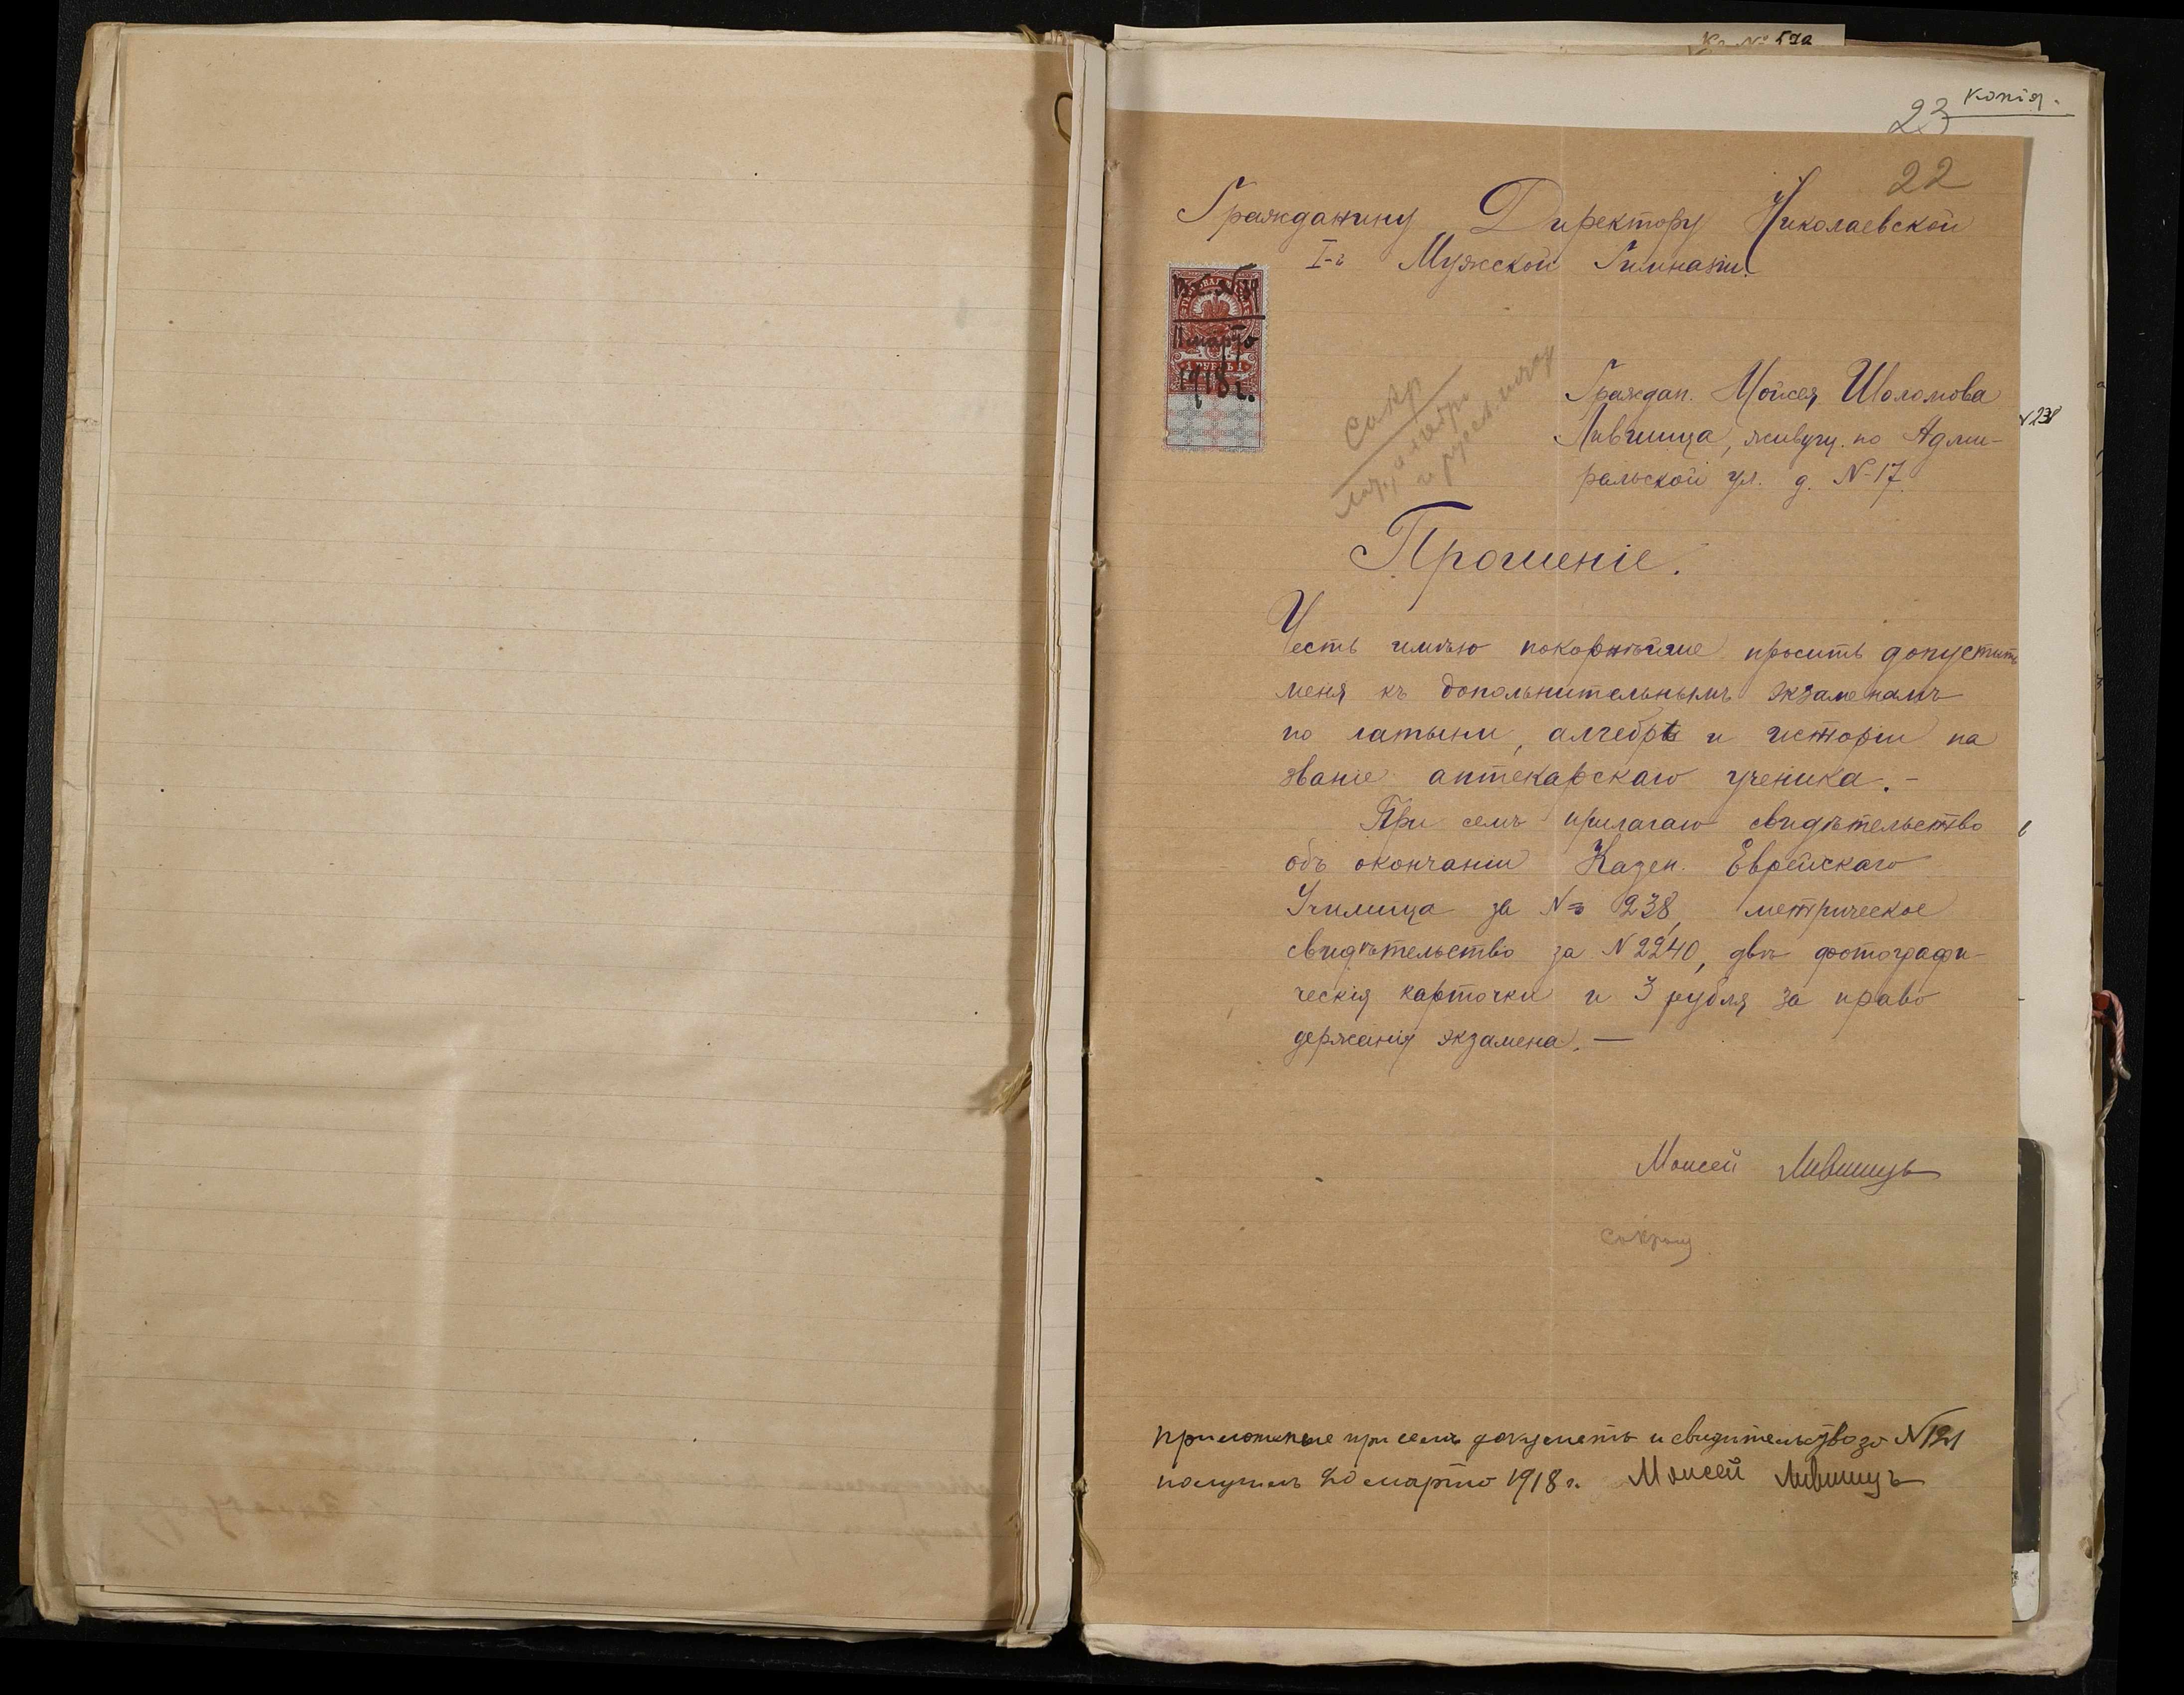 копія.
23
22
Гражданину Директору Николаевской
I-й Мужской Гимназіи.
11 марта
1 РУБЛЬ 1
1918 г.
Граждан. Мойсея Шоломова
Лившица, живущ. по Адми-
ральской ул. д. N-17.
N 238
Прошеніе.
Честь имѣю покорнѣйше просить допустить
меня къ дополнительнымъ экзаменамъ
по латыни, алгебрѣ и исторіи на
званіе аптекарскаго ученика. -
При семъ прилагаю свидѣтельство
объ окончаніи Казен. Еврейскаго
Училища за № 238, метрическое
свидѣтельство за N 2240, двѣ фотографи-
ческія карточки и 3 рубля за право
держанія экзамена. —
Моисей Лившицъ
приложеные при семъ документъ и свидѣтельство за N 121
получилъ 20 марта 1918 г. Моисей Лившицъ